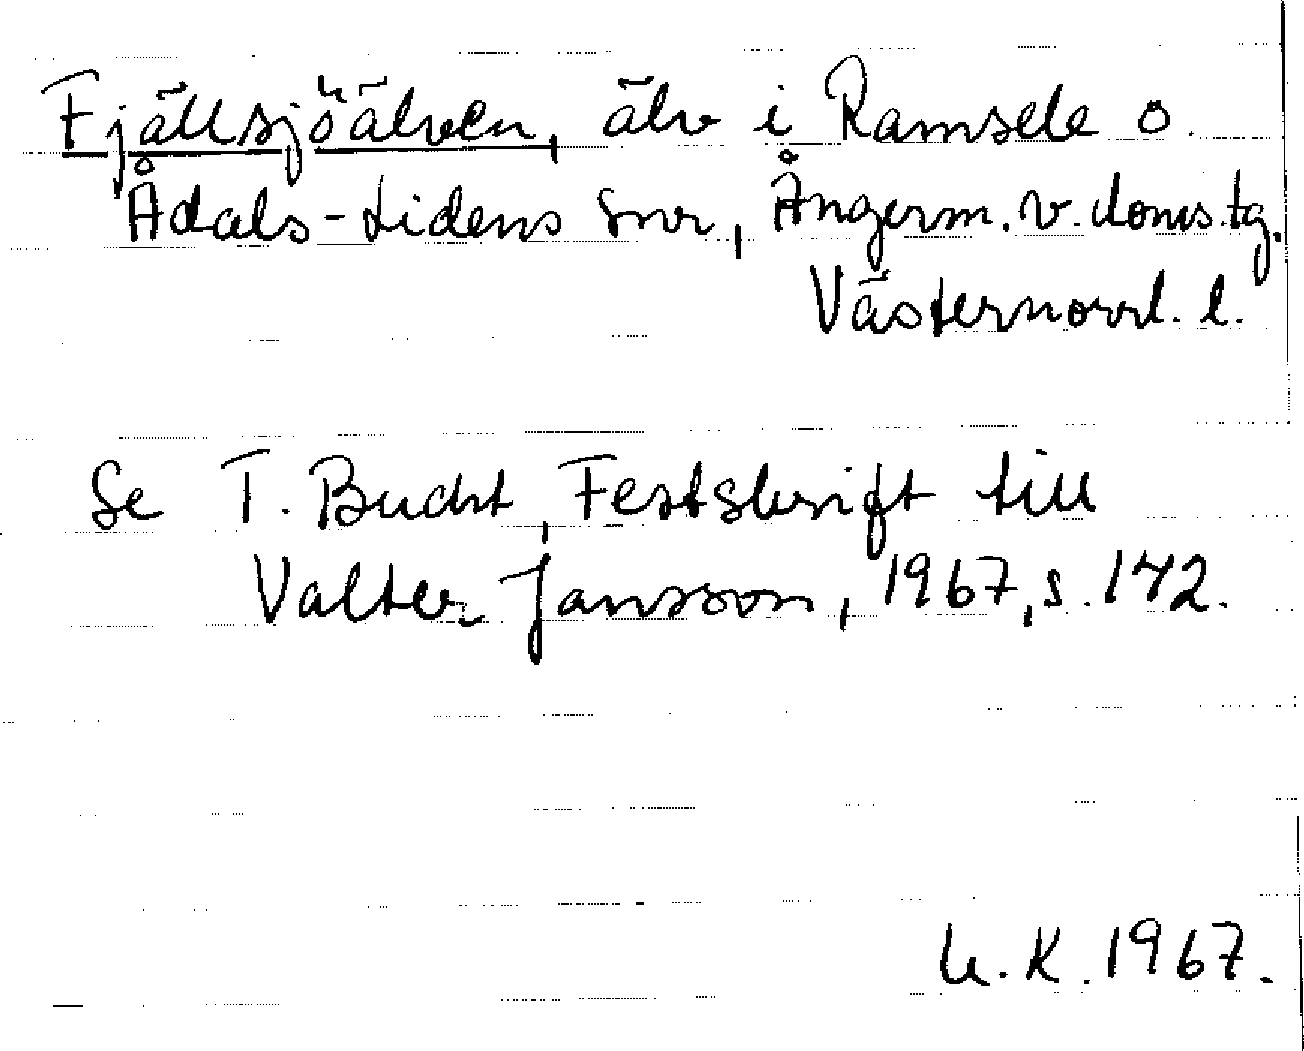 Fjällsjöälven, älv i Ramsele o.
Ådals-Lidens snr, Ångerm. v. doms.tg.
Västernorrl. l.
Se T. Bucht, Festskrift till
Valter Jansson, 1967, s. 142.
U. K. 1967.